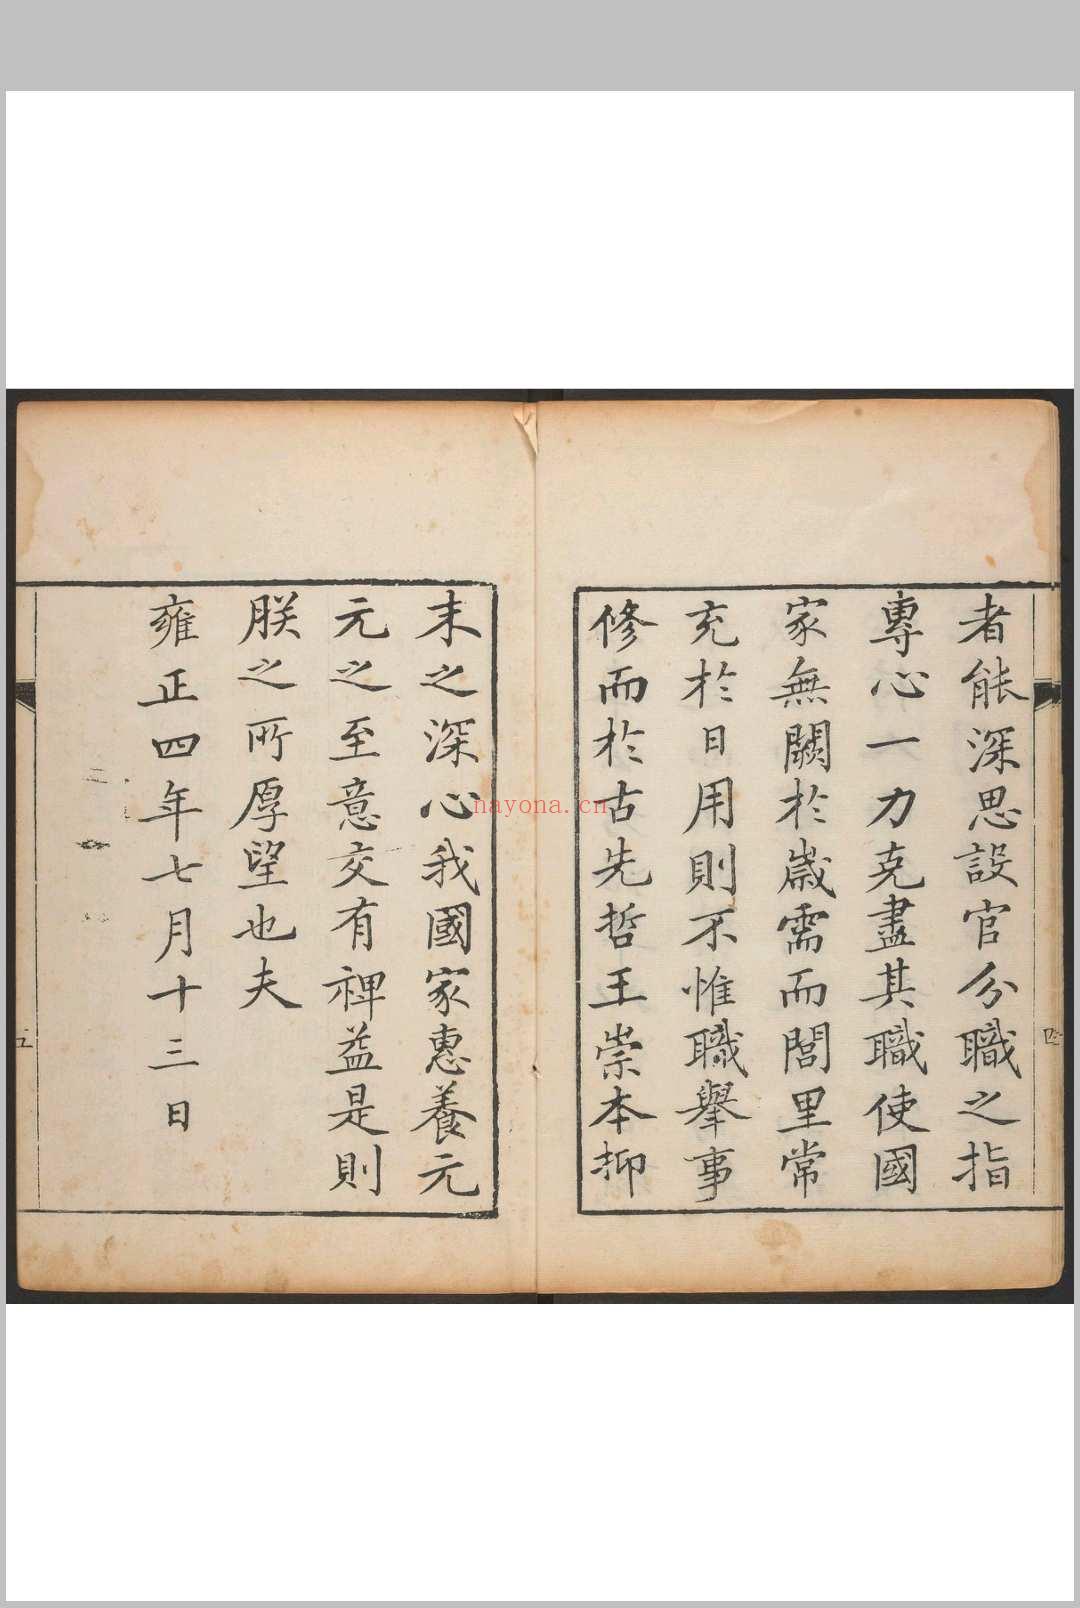 者能深思設官分職之指
專心一力克盡其職使國
家無闕於歲需而閭里常
充於日用則不惟職舉事
修而於古先哲王崇本抑
末之深心我國家惠養元
元之至意交有裨益是則
朕之所厚望也夫
雍正四年七月十三日
四
五
nayona.cn